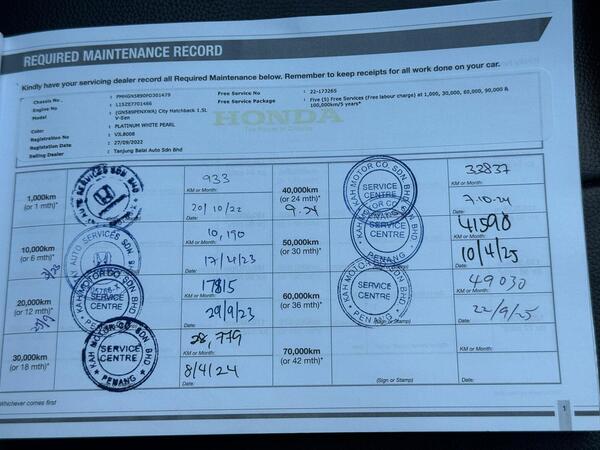 REQUIRED MAINTENANCE RECORD
Kindly have your servicing dealer record all Required Maintenance below. Remember to keep receipts for all work done on your car.
Chassis No : PMHGN5890PD301479 Free Service No : 22-177265
Engine No : L15ZE7701466 Free Service Package : Five (5) Free Services (Free labour charge) at 1,000, 30,000, 60,000, 90,000 &
Model : (GN589PENXWA) City Hatchback 1.5L 100,000km/5 years*
V-Sen
Color : PLATINUM WHITE PEARL
Registration No : VJL8008
Registration Date : 27/09/2022
Selling Dealer : Tanjung Balai Auto Sdn Bhd
HONDA
The Power of Dreams
1,000km
(or 1 mth)*
933
KM or Month:
20/10/22
Date:
40,000km
(or 24 mth)*
9.24
KAH MOTOR CO. SDN BHD
SERVICE
CENTRE
32837
KM or Month:
7.10.24
10,000km
(or 6 mth)*
AY AUTO SERVICES SDN
10,190
KM or Month:
17/4/23
Date:
50,000km
(or 30 mth)*
KAH MOTOR CO. SDN BHD
SERVICE
CENTRE
PENANG
41598
10/4/25
Date:
20,000km
(or 12 mth)*
29/9
KAH MOTOR CO. SDN BHD
SERVICE
CENTRE
17815
KM or Month:
29/9/23
Date:
60,000km
(or 36 mth)*
KAH MOTOR CO. SDN BHD
SERVICE
CENTRE
PENANG
(Sign or Stamp)
49030
KM or Month:
22/9/25
Date:
30,000km
(or 18 mth)*
KAH MOTOR CO. SDN BHD
SERVICE
CENTRE
PENANG
28,779
KM or Month:
8/4/24
Date:
70,000km
(or 42 mth)*
(Sign or Stamp)
KM or Month:
Date:
Whichever comes first
1